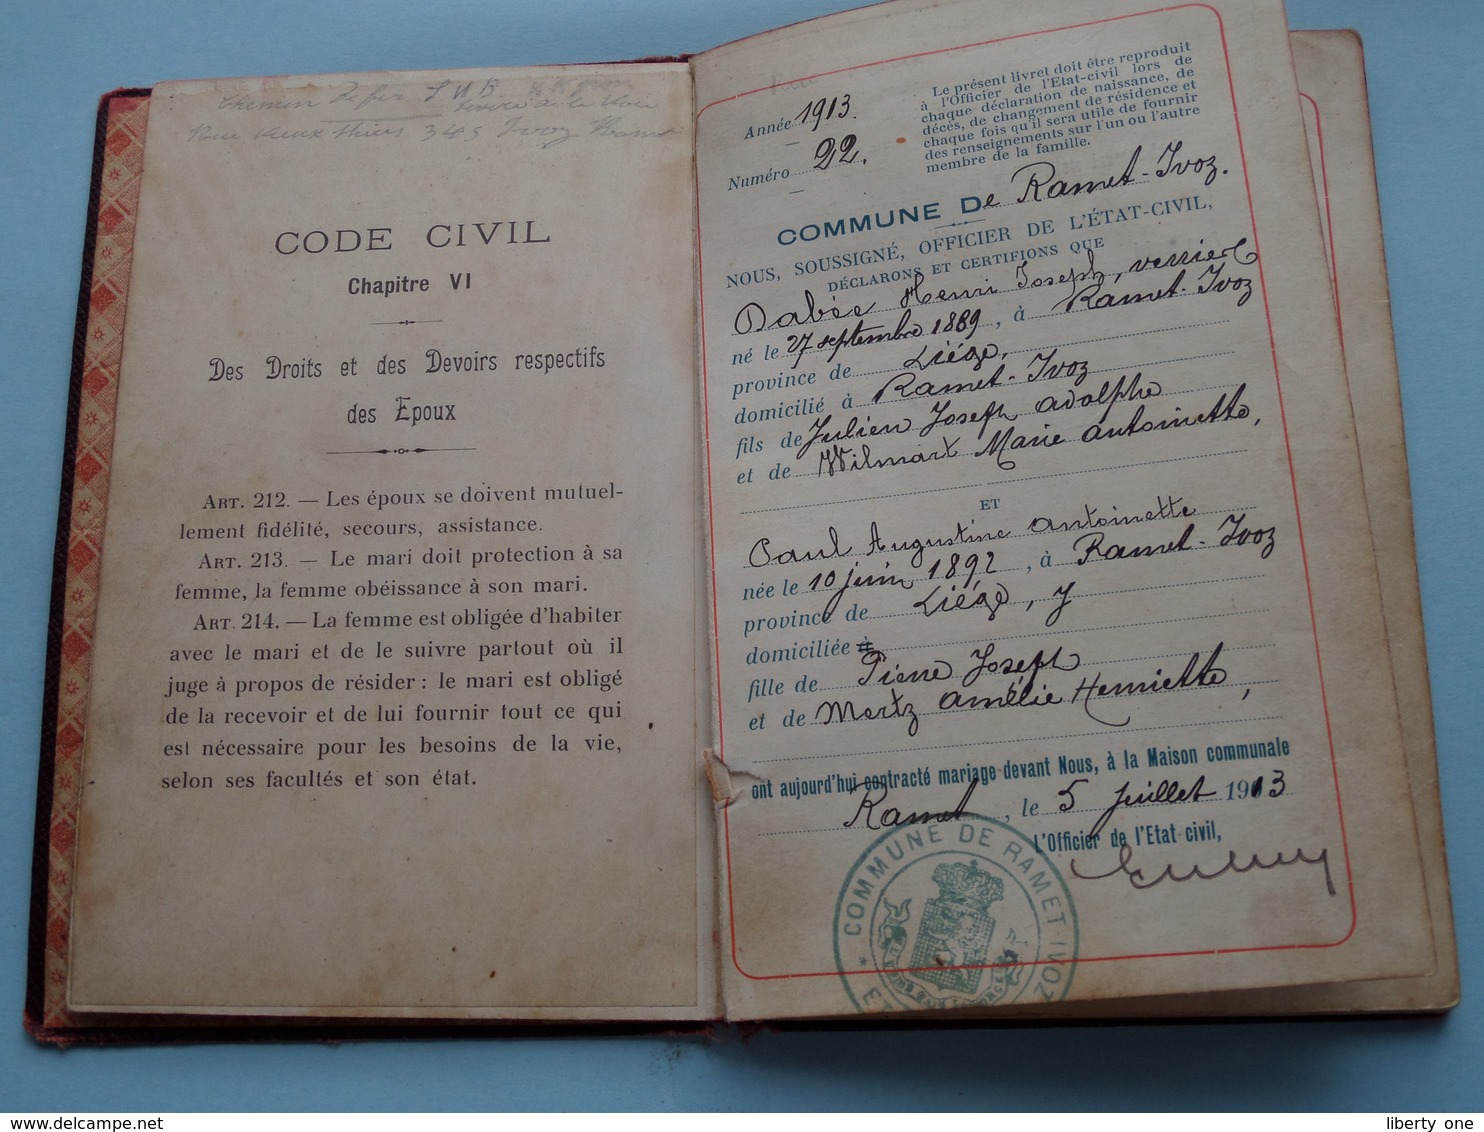 Chemin de fer
Rue Vieux Thiers 345 Ivoz Ramet
CODE CIVIL
Chapitre VI
Des Droits et des Devoirs respectifs
des Epoux
ART. 212. — Les époux se doivent mutuel-
lement fidélité, secours, assistance.
ART. 213. — Le mari doit protection à sa
femme, la femme obéissance à son mari.
ART. 214. — La femme est obligée d'habiter
avec le mari et de le suivre partout où il
juge à propos de résider : le mari est obligé
de la recevoir et de lui fournir tout ce qui
est nécessaire pour les besoins de la vie,
selon ses facultés et son état.
Année 1913.
Numéro 22.
Le présent livret doit être reproduit
à l'Officier de l'Etat-civil lors de
chaque déclaration de naissance, de
décès, de changement de résidence et
chaque fois qu'il sera utile de fournir
des renseignements sur l'un ou l'autre
membre de la famille.
COMMUNE De Ramet-Ivoz.
NOUS, SOUSSIGNÉ, OFFICIER DE L'ÉTAT-CIVIL,
DÉCLARONS ET CERTIFIONS QUE
Dabée Henri Joseph, verrier
né le 27 septembre 1889, à Ramet-Ivoz
province de Liége,
domicilié à Ramet-Ivoz
fils de Julien Joseph Adolphe
et de Wilmart Marie Antoinette,
ET
Paul Augustine Antoinette
née le 10 juin 1892, à Ramet-Ivoz
province de Liége, y
domiciliée à
fille de Pierre Joseph
et de Mertz Amélie Henriette,
ont aujourd'hui contracté mariage devant Nous, à la Maison communale
Ramet, le 5 juillet 1913
L'Officier de l'Etat-civil,
COMMUNE DE RAMET-IVOZ
liberty one